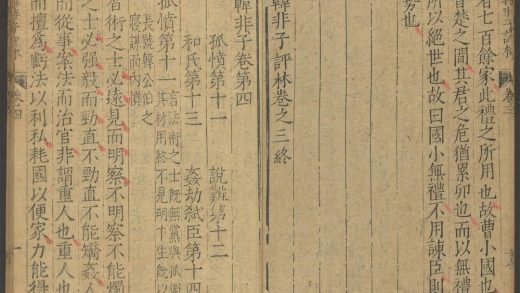 者七百餘家此禮之所用也故曹小國也
晉楚之間其君之危猶累卵也而以無禮
所以絕世也故曰國小無禮不用諫臣則
勢也
韓非子評林卷之三終
韓非子卷第四
孤憤第十一
說難第十二
和氏第十三
姦劫弒臣第十四
孤憤第十一
言法術之士既無黨與孤獨
其材用終不見明卞生既以
長號韓公伯之
寢謀而內憤
智術之士必遠見而明察不明察不能燭
之士必强毅而勁直不勁直不能矯姦人
而從事案法而治官非謂重人也重人也
而擅為虧法以利私耗國以便家力能得
卷四